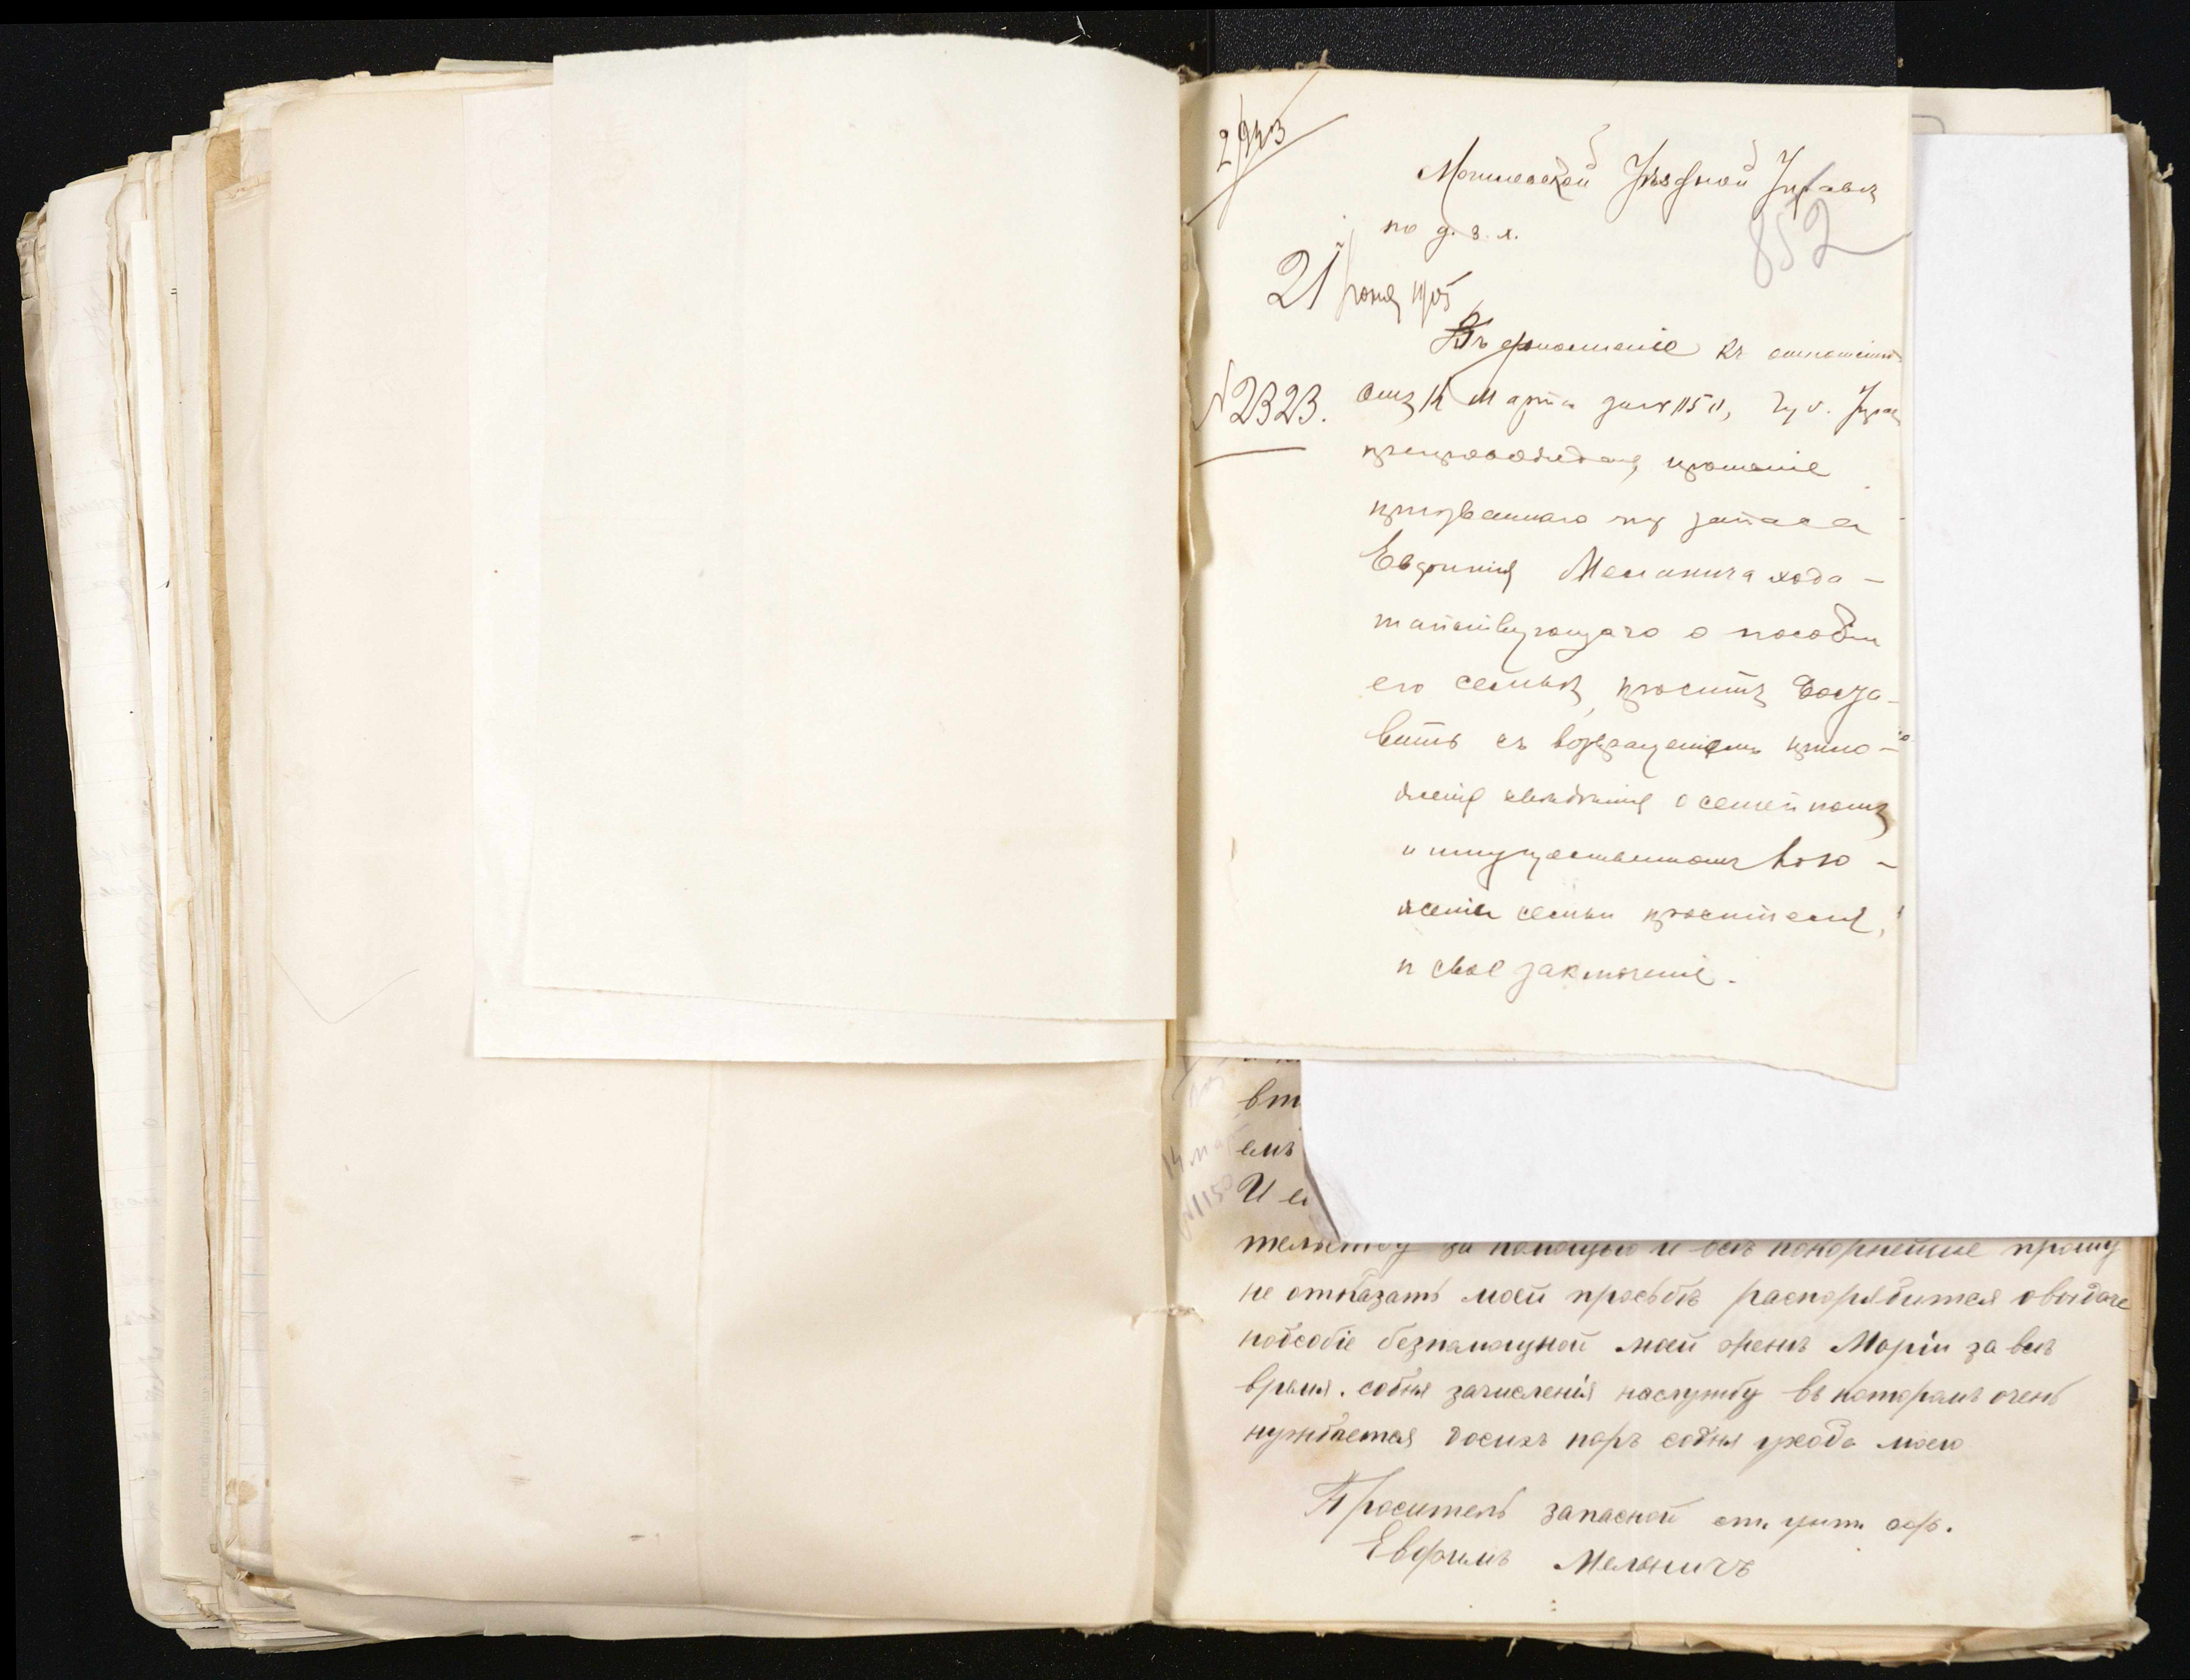 2943
Могилевской Уѣздной Управѣ
по д. з. х.
852
21 Іюня 1905
№ 2323.
Въ дополненіе къ отношенію
отъ 14 Марта за № 1150, Губ. Управ
препровождая, прошеніе
призваннаго изъ запаса
Евфимія Мельнича хода-
тайствующаго о пособіи
его семьѣ, проситъ доста-
вить съ возвращеніемъ прило-
женія свѣдѣнія о семейномъ
и имущественномъ поло-
женіи семьи просителя,
и свое заключеніе.
вт
емъ
И ес
14 мар
№ 1150
за помощью и всѣ покорнейше прошу
не отказать моей просьбѣ распорядится о выдаче
пособіе безпамощной моей женѣ Маріи за всѣ
время. содня зачисленія наслужбу въ которамъ очень
нуждается досихъ поръ содня ухода моего
Проситель запасной ст. унт. оф.
Евфимъ Мельничъ